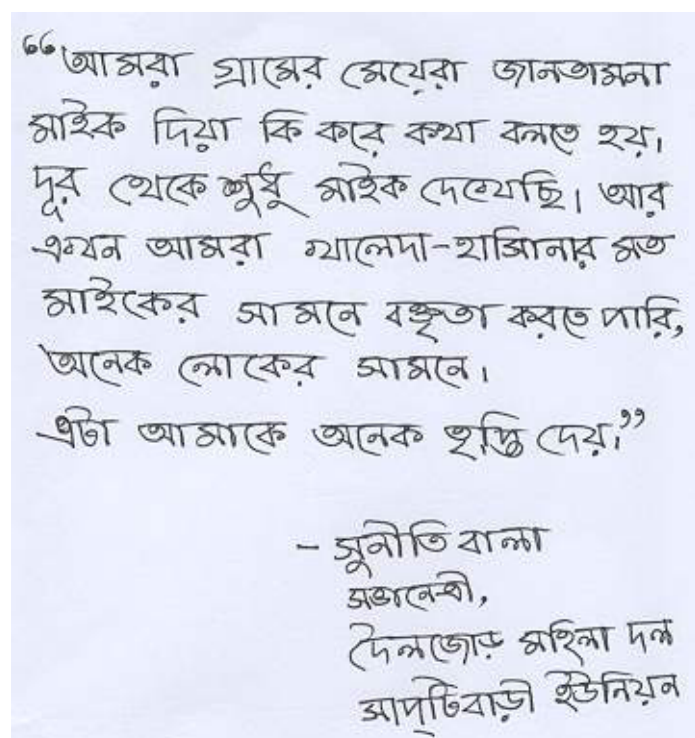 “আমরা গ্রামের মেয়েরা জানতামনা
মাইক দিয়া কি করে কথা বলতে হয়।
দূর থেকে শুধু মাইক দেখেছি। আর
এখন আমরা খালেদা-হাসিনার মত
মাইকের সামনে বক্তৃতা করতে পারি,
অনেক লোকের সামনে।
এটা আমাকে অনেক তৃপ্তি দেয়।”
- সুনীতি বালা
সভানেত্রী,
দৈলজোড় মহিলা দল
সাপ্টিবাড়ী ইউনিয়ন